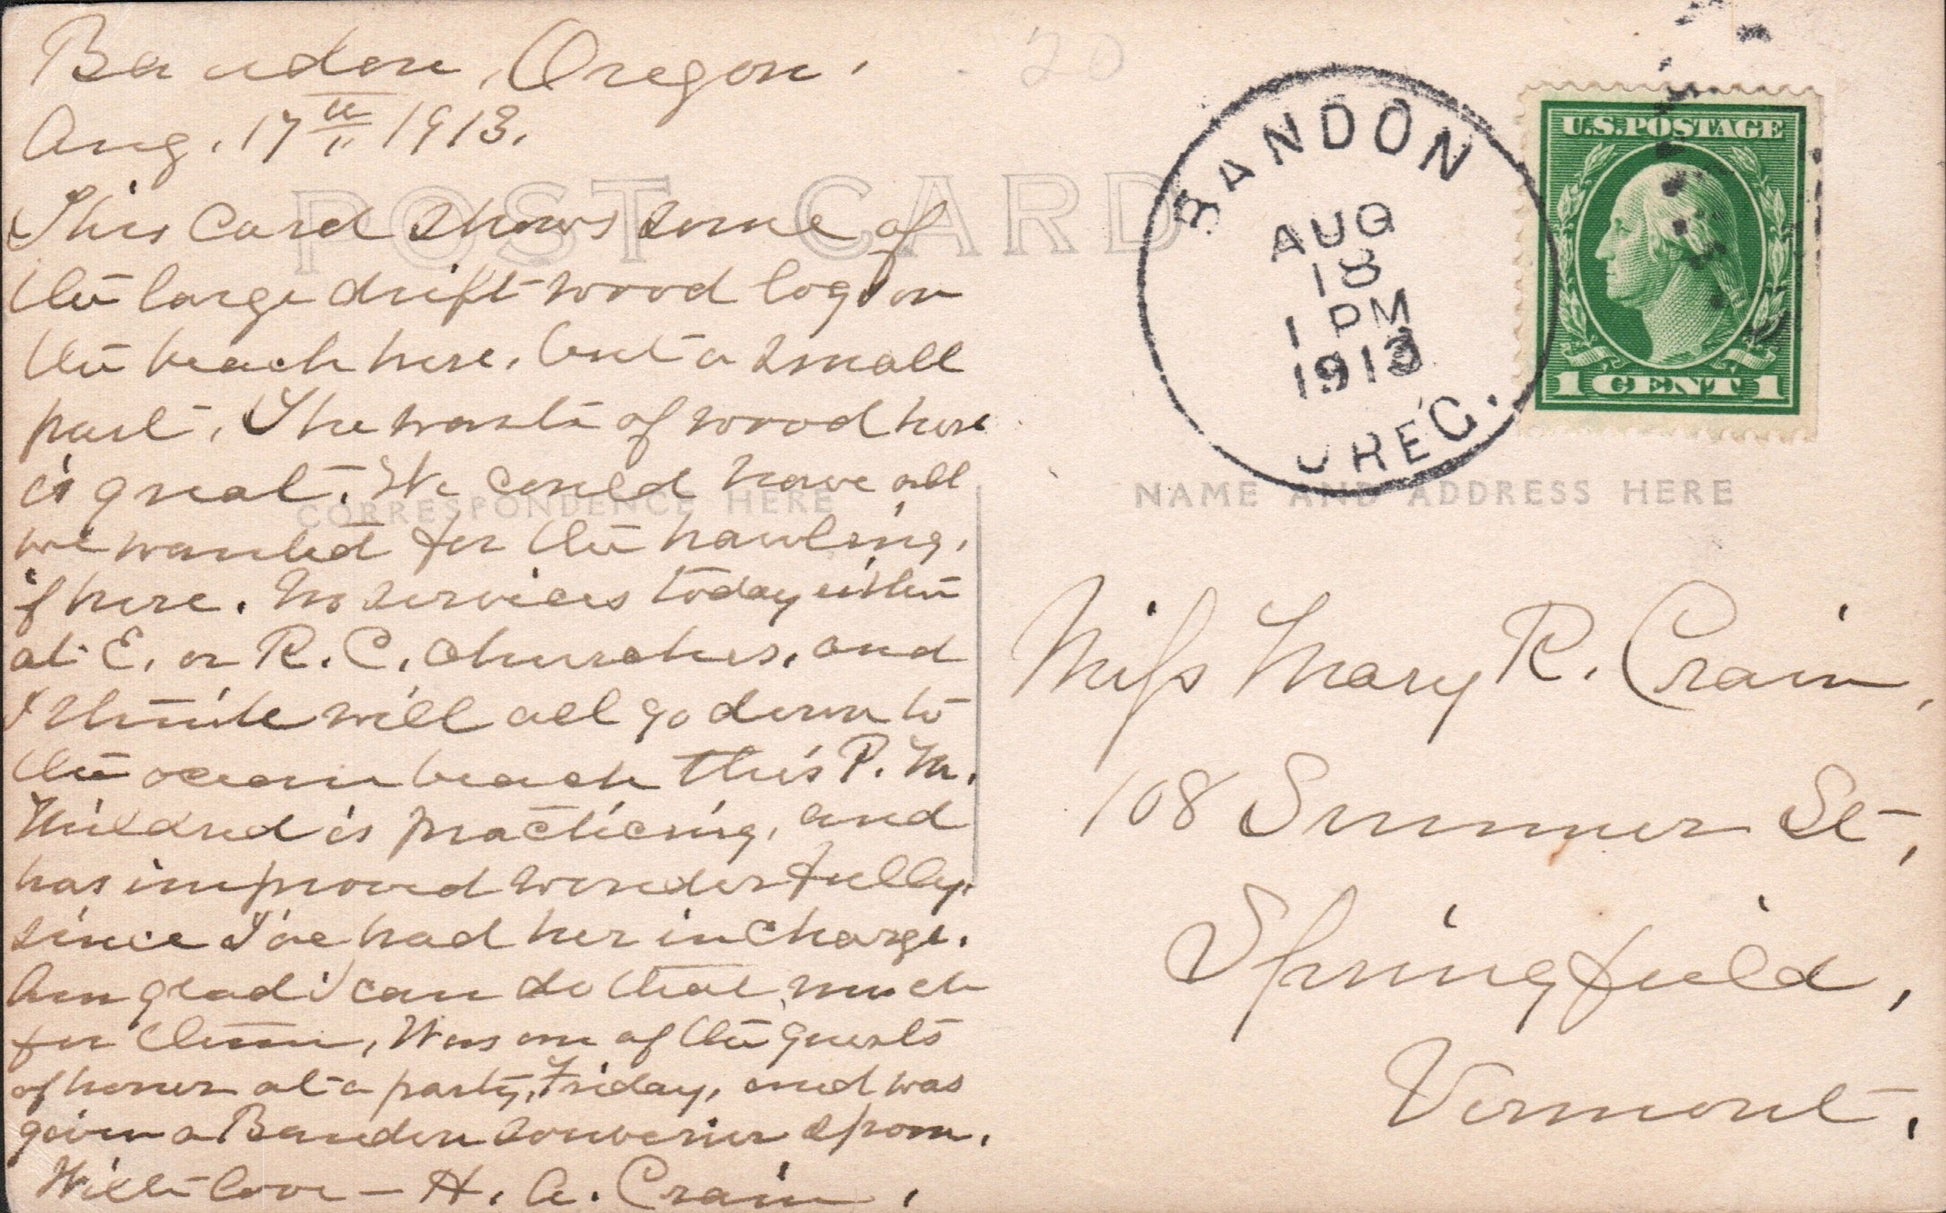 Bandon, Oregon.
Aug. 17th 1913.
20
POST CARD
This card shows some of
the large drift wood logs on
the beach here, but a small
part. The waste of wood here
is great. We could have all
we wanted for the hauling,
if here. No services today either
at E. or R. C. churches, and
I think will all go down to
the ocean beach this P. M.
Mildred is practicing, and
has improved wonderfully,
since I've had her in charge.
Am glad I can do that much
for them. Was one of the guests
of honor at a party, Friday, and was
given a Bandon souvenier spoon.
With love – H. A. Crain.
CORRESPONDENCE HERE
BANDON
AUG
18
1 PM
1913
OREG.
U.S. POSTAGE
1 CENT 1
NAME AND ADDRESS HERE
Miss Mary R. Crain,
108 Summer St.,
Springfield,
Vermont.